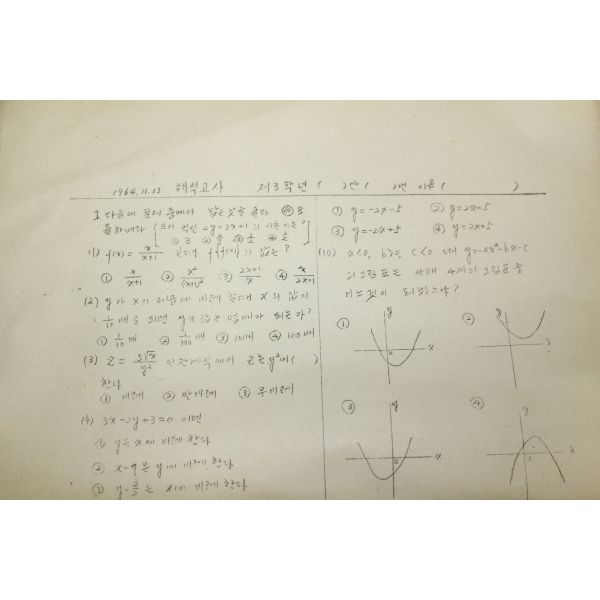 1964.11.13 해석고사 제3학년 ( )반 ( )번 이름 ( )
I 다음에 문제 중에서 맞는것을 골라 표
를하여라
(1) f(x) = x/x+1 일때 f{f(x)}의 값은?
① x/x+1 ② x²/(x+1)² ③ 2x+1/x ④ x/2x+1
(2) y가 x의 제곱에 비례 할때 x의 값이
1/10배로 되면 y의 값은 몇배가 되는가?
① 1/10배 ② 1/100배 ③ 10배 ④ 100배
(3) Z = 5√x/y² 인 관계식에서 Z는 y²에 ( )
한다
① 비례 ② 반비례 ③ 무비례
(4) 3x-2y+3=0 이면
① y는 x에 비례한다
② x-9는 y에 비례한다
③ y-3/2는 x에 비례한다
① y=-2x-5 ② y=2x-5
③ y=-2x+5 ④ y=2x+5
(10) a<0, b>0, c<0 때 y=-ax²-bx-c
의 그림표는 아래 4개의 그림표 중
어느것이 되겠느냐?
① y x 0
② y x
③ y x 0
④ y x